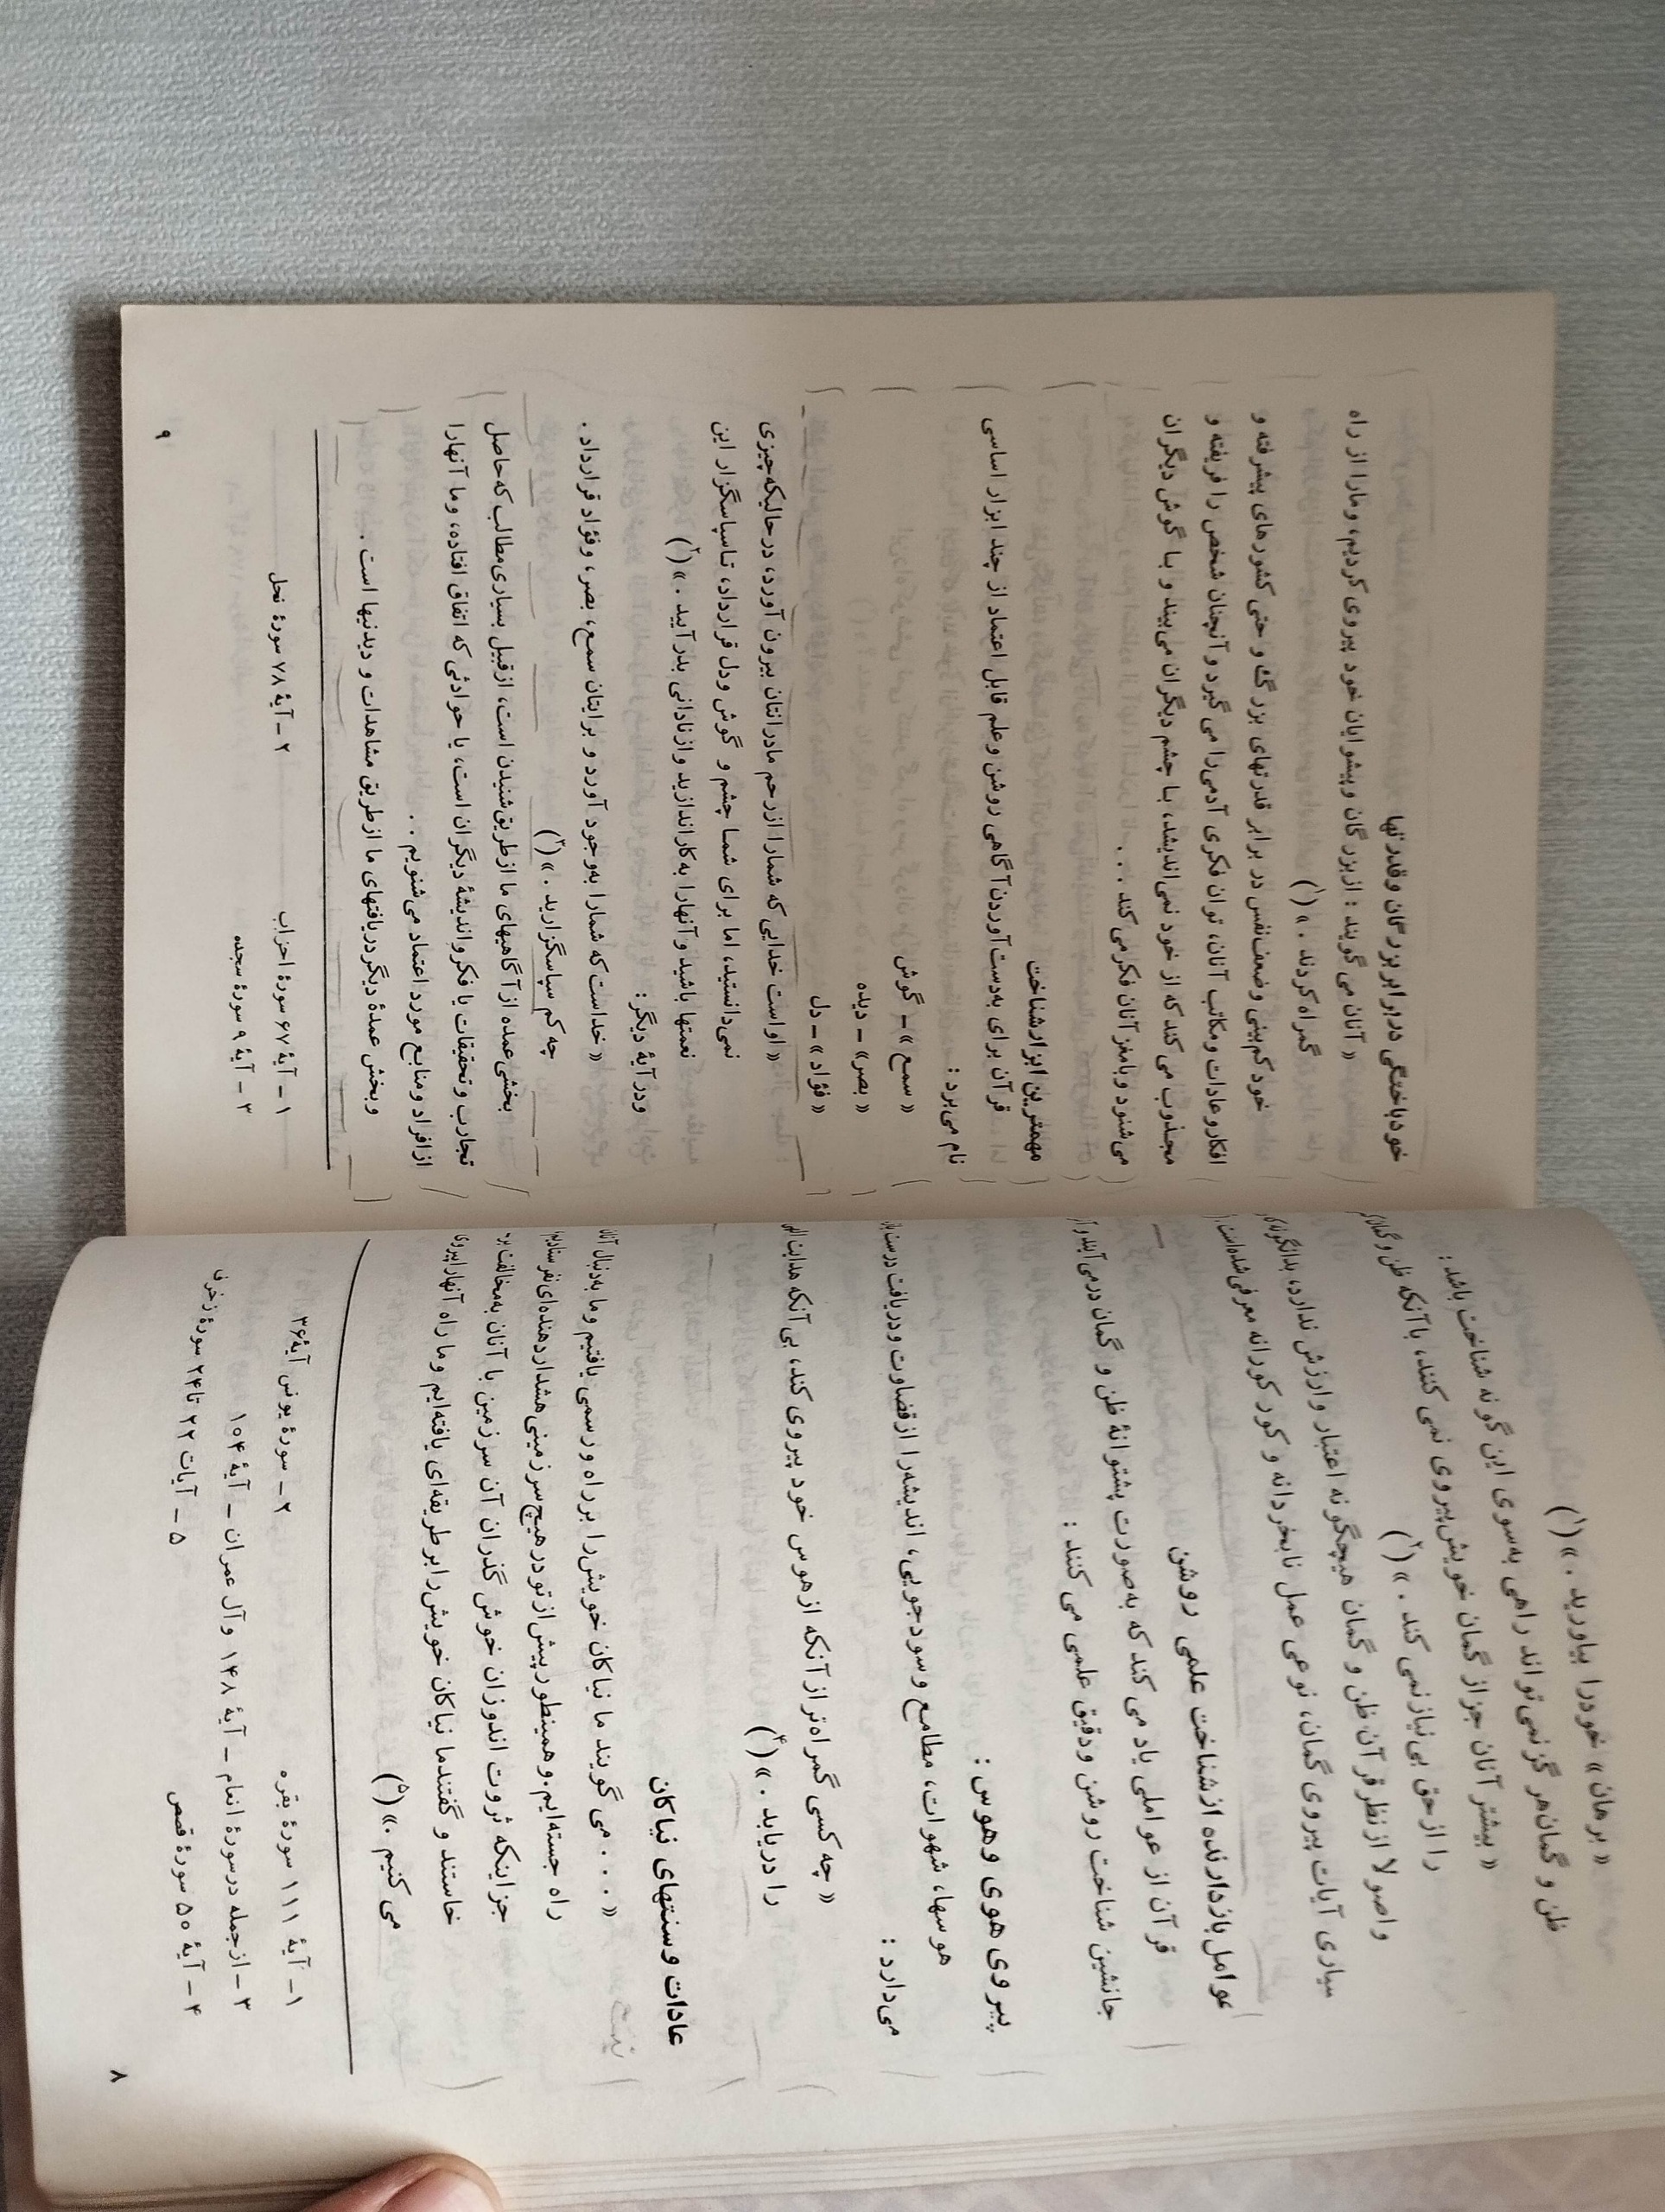 « برهان » خودرا بیاورید . » (۱)
ظن و گمان هرگز نمی‌تواند راهی به‌سوی این گونه شناخت باشد :
« بیشتر آنان جز از گمان خویش پیروی نمی کنند، با آنکه ظن و گمان
را از حق بی نیاز نمی کند . » (۲)
و اصولا از نظر قرآن ظن و گمان هیچگونه اعتبار و ارزش ندارد، بدانگونه که
بسیاری آیات پیروی گمان، نوعی عمل نابخردانه و کورکورانه معرفی شده‌است
عوامل بازدارنده ازشناخت علمی روشن
قرآن از عواملی یاد می کند که به‌صورت پشتوانهٔ ظن و گمان درمی‌آیند و
جانشین شناخت روشن و دقیق علمی می کنند :
پیروی هوی و هوس :
هوسها، شهوات، مطامع و سودجویی، اندیشه‌را از قضاوت و دریافت درست باز
می‌دارد :
« چه کسی گمراه‌تر از آنکه از هوس خود پیروی کند، بی آنکه هدایت الهی
را دریابد . » (۴)
عادات و سنتهای نیاکان
« . . . می گویند ما نیاکان خویش‌را بر راه و رسمی یافتیم و ما به‌دنبال آنان
راه جسته‌ایم. و همینطور پیش از تو در هیچ سرزمینی هشداردهنده‌ای نفرستادیم
جز اینکه ثروت اندوزان خوش گذران آن سرزمین با آنان به‌مخالفت بر
خاستند و گفتند ما نیاکان خویش‌را بر طریقه‌ای یافته‌ایم و ما راه آنها را پیروی
می کنیم .» (۵)
۱- آیهٔ ۱۱۱ سورهٔ بقره
۲ - سورهٔ یونس آیهٔ ۳۶
۳ - ازجمله درسورهٔ انعام - آیهٔ ۱۴۸ و آل عمران - آیهٔ ۱۵۴
۴ - آیهٔ ۵۰ سورهٔ قصص
۵ - آیات ۲۲ تا ۲۴ سورهٔ زخرف
۸
خودباختگی در برابر بزرگان و قدرتها
« آنان می گویند : از بزرگان و پیشوایان خود پیروی کردیم، و ما را از راه
گمراه کردند . » (۱)
خود کم‌بینی و ضعف نفس در برابر قدرتهای بزرگ و حتی کشورهای پیشرفته و
افکار و عادات و مکاتب آنان، توان فکری آدمی را می گیرد و آنچنان شخص را فریفته و
مجذوب می کند که از خود نمی‌اندیشد، با چشم دیگران می‌بیند و با گوش دیگران
می‌شنود و با مغز آنان فکر می کند . . .
مهمترین ابزار شناخت
قرآن برای به‌دست آوردن آگاهی روشن و علم قابل اعتماد از چند ابزار اساسی
نام می‌برد :
« سمع » - گوش
« بصر» - دیده
« فؤاد» - دل
« او است خدایی که شمارا از رحم مادرانتان بیرون آورد، درحالیکه چیزی
نمی‌دانستید، اما برای شما چشم و گوش و دل قرارداد، تا سپاسگزار این
نعمتها باشید و آنهارا به کار اندازید و از نادانی بدر آیید . » (۲)
و در آیهٔ دیگر :
« خداست که شمارا به‌وجود آورد و برایتان سمع، بصر، و فؤاد قرارداد .
چه کم سپاسگزارید . » (۳)
بخشی عمده از آگاهیهای ما از طریق شنیدن است، از قبیل بسیاری مطالب که حاصل
تجارب و تحقیقات یا فکر و اندیشهٔ دیگران است، یا حوادثی که اتفاق افتاده، و ما آنهارا
از افراد و منابع مورد اعتماد می‌شنویم . .
و بخش عمدهٔ دیگر دریافتهای ما از طریق مشاهدات و دیدنیها است .
۱ - آیهٔ ۶۷ سورهٔ احزاب
۲ - آیهٔ ۷۸ سورهٔ نحل
۳ - آیهٔ ۹ سورهٔ سجده
۹